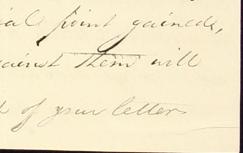 ial point gained,
against them will
of your letter